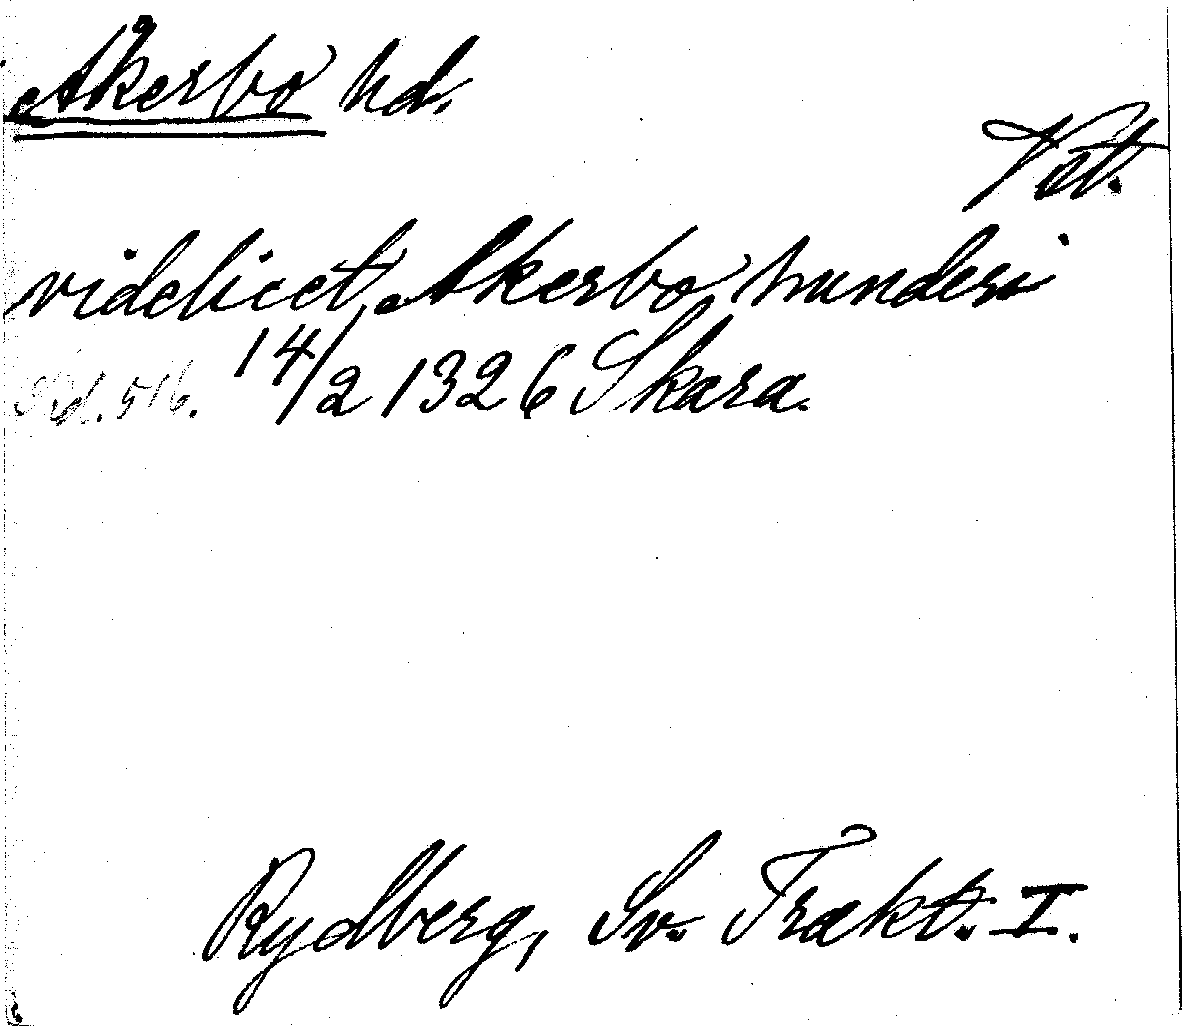 Åkerbo hd.
Vät.
videlicet Akerbo hunderi
Rd. 516. 14/2 1326 Skara.
Rydberg, Sv. Trakt. I.